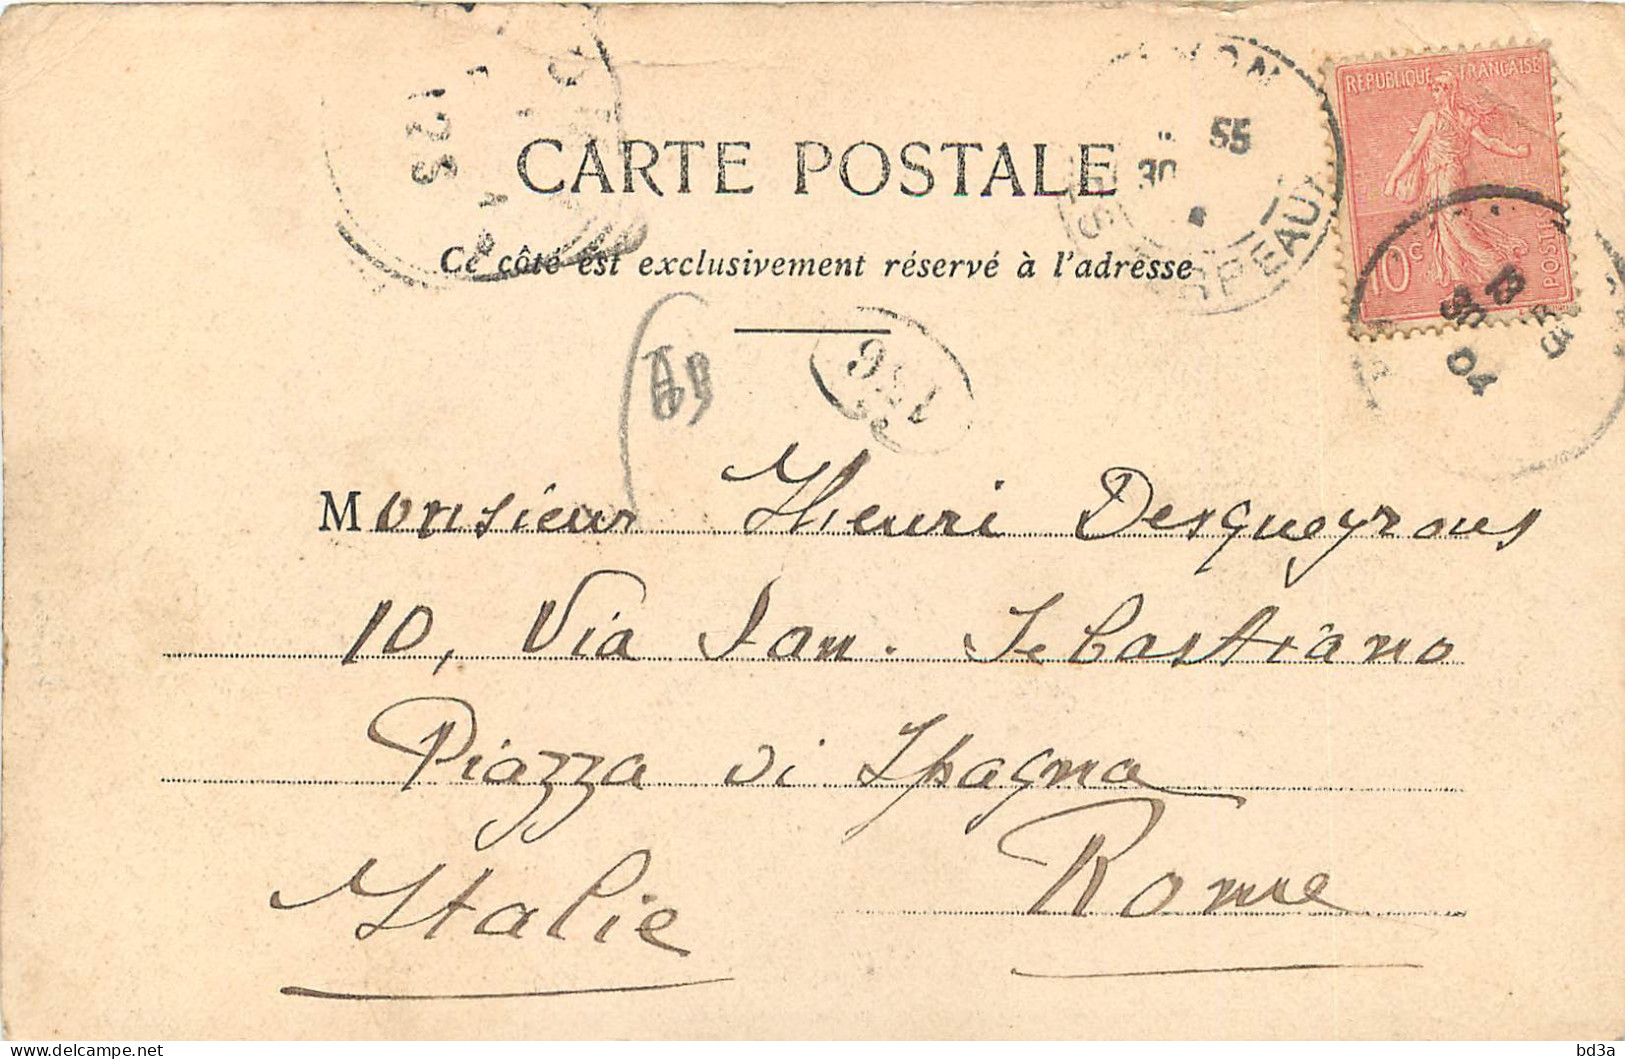 CARTE POSTALE
Ce côté est exclusivement réservé à l'adresse
RÉPUBLIQUE FRANÇAISE
10c
POSTES
30
55
30
04
125
136
AB
Monsieur Henri Desqueyrous
10, Via San. Sebastiano
Piazza di Spagna
Rome
Italie
bd3a